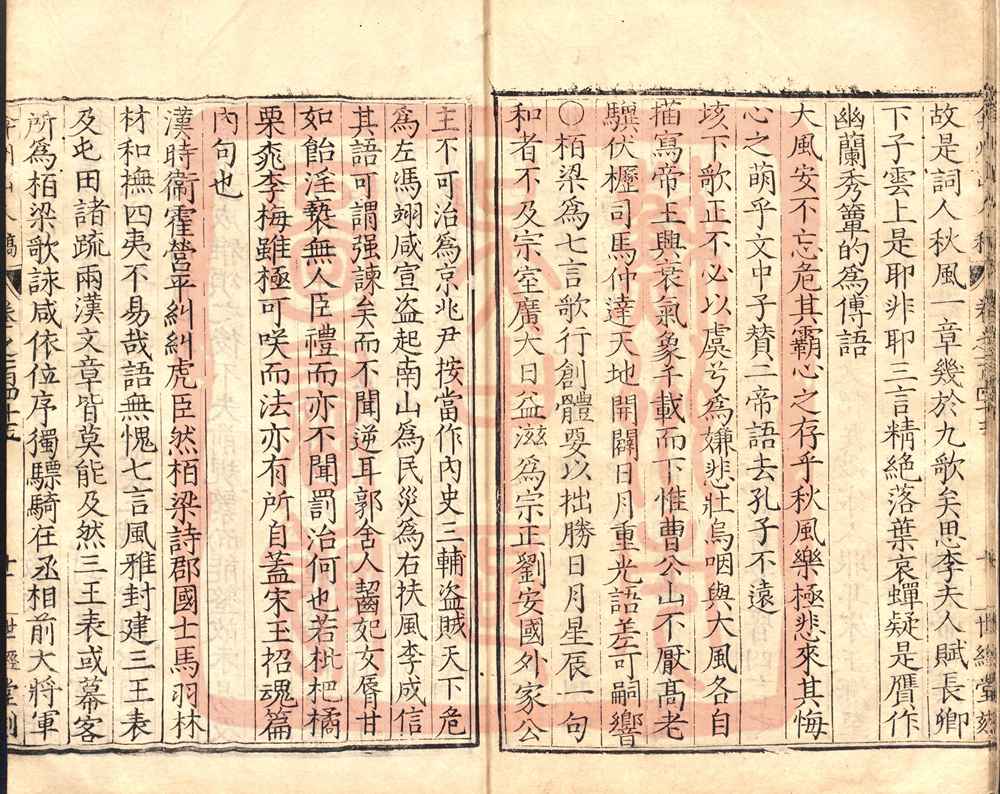 故是詞人秋風一章幾於九歌矣思李夫人賦長卿
下子雲上是耶非耶三言精絕落葉哀蟬疑是贋作
幽蘭秀簟的為傅語
大風安不忘危其霸心之存乎秋風樂極悲來其悔
心之萌乎文中子賛二帝語去孔子不遠
垓下歌正不必以虞兮為嫌悲壯烏咽與大風各自
描寫帝王興衰氣象千載而下惟曹公山不厭髙老
驥伏櫪司馬仲達天地開闢日月重光語差可嗣響
〇栢梁為七言歌行創體要以拙勝日月星辰一句
和者不及宗室廣大日益滋為宗正劉安國外家公
主不可治為京兆尹按當作內史三輔盗賊天下危
為左馮翊咸宣盗起南山為民災為右扶風李成信
其語可謂强諫矣而不聞逆耳郭舍人齧妃女脣甘
如飴淫褻無人臣禮而亦不聞罰治何也若枇杷橘
栗桃李梅雖極可咲而法亦有所自蓋宋玉招魂篇
內句也
漢時衛霍營平糾糾虎臣然栢梁詩郡國士馬羽林
材和撫四夷不易哉語無愧七言風雅封建三王表
及屯田諸疏兩漢文章皆莫能及然三王表或幕客
所為栢梁歌詠咸依位序獨驃騎在丞相前大將軍